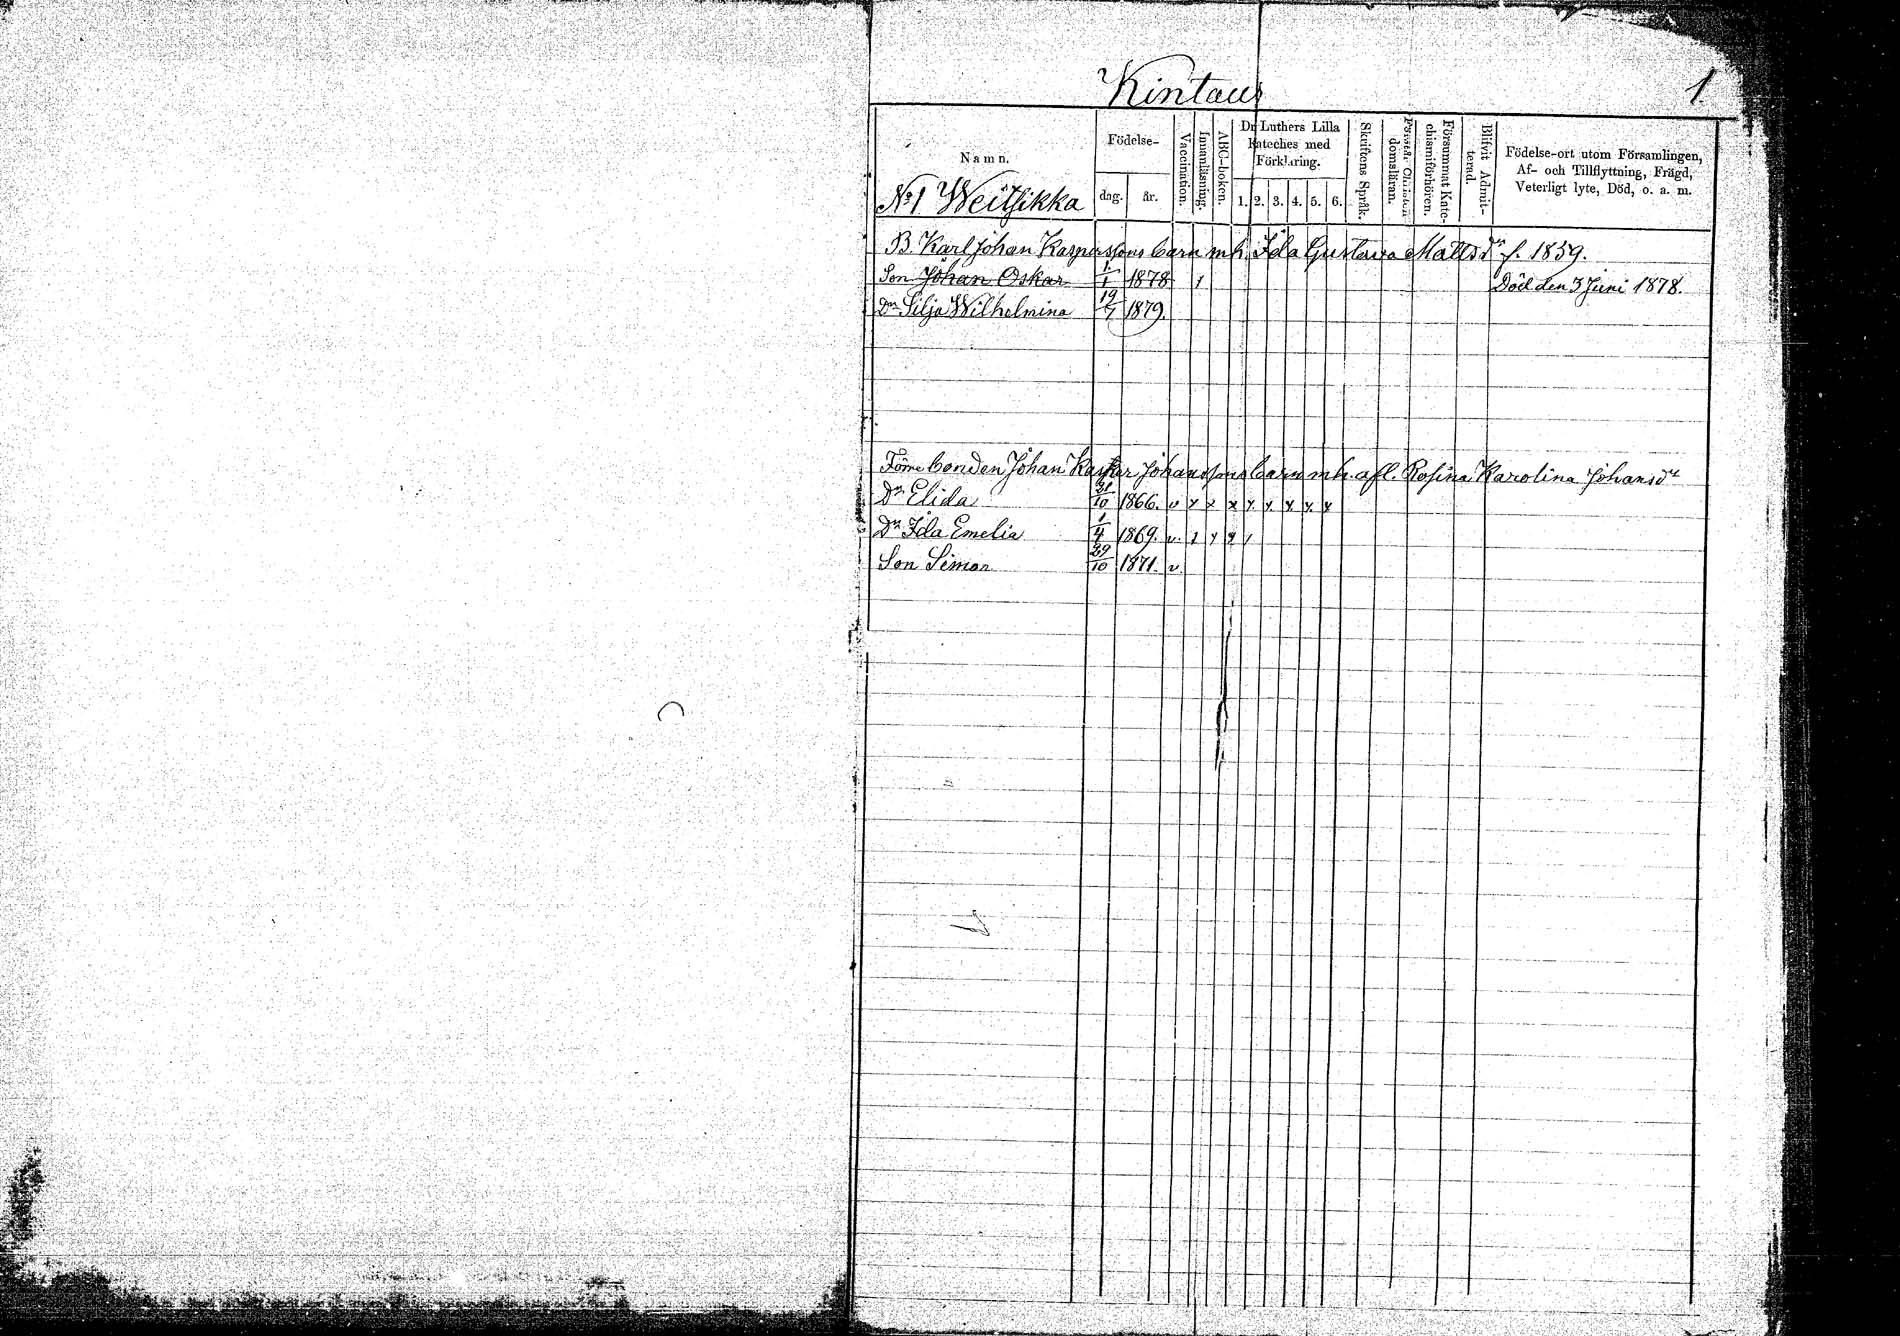 Kintaus
1.
Namn.
Födelse-
dag.
år.
Vaccination.
Innanläsning.
ABC-boken.
Dr Luthers Lilla
Kateches med
Förklaring.
1. 2. 3. 4. 5. 6.
Skriftens Språk.
domsläran.
Försummat Kate-
chismiförhören.
Blifvit Admit-
terad.
Födelse-ort utom Församlingen,
Af- och Tillflyttning, Frägd,
Veterligt lyte, Död, o. a. m.
No 1 Weitsikka
B. Karl Johan Kasperssons barn m. h. Ida Gustava Matts dr f. 1859.
Son Johan Oskar 1/1 1878 1 Död den 3 Juni 1878.
Dr Silja Wilhelmina 19/7 1879.
Förre bonden Johan Kasper Johanssons barn m. h. afl. Rosina Karolina Johans dr
Dr Elida 31/10 1866. v x x x x x x x x
Dr Ida Emelia 1/4 1869. v.
Son Simon 29/10 1871. v.